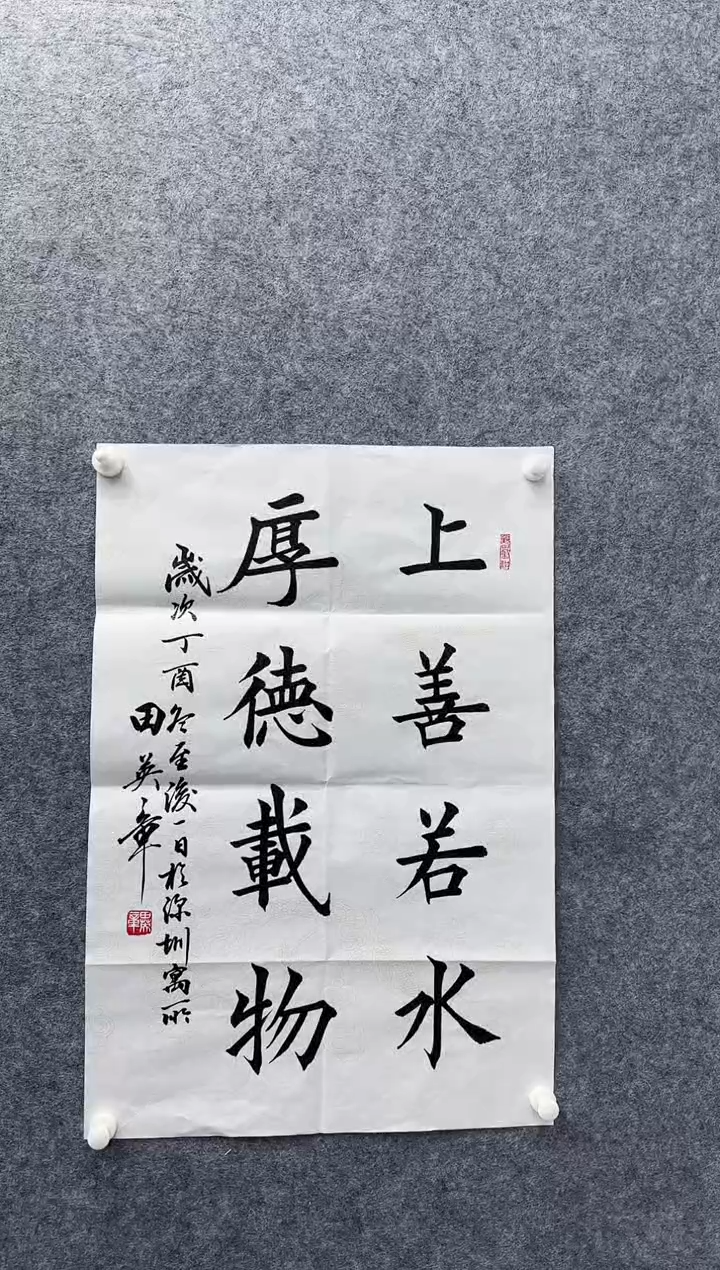 上善若水
厚德載物
歲次丁酉冬至後一日於深圳寓所
田英章